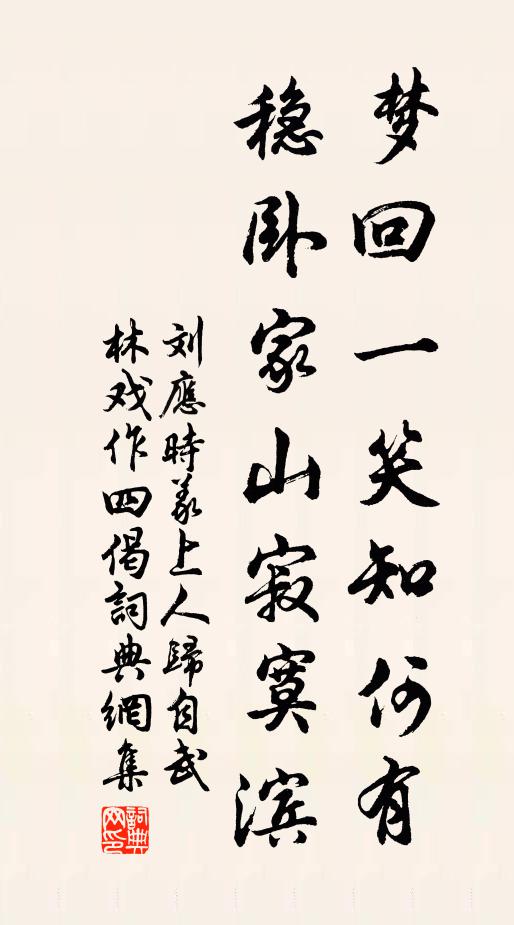 梦回一笑知何有
稳卧家山寂寞滨
刘應時義上人歸自武
林戏作四偈詞典網集
詞典網印